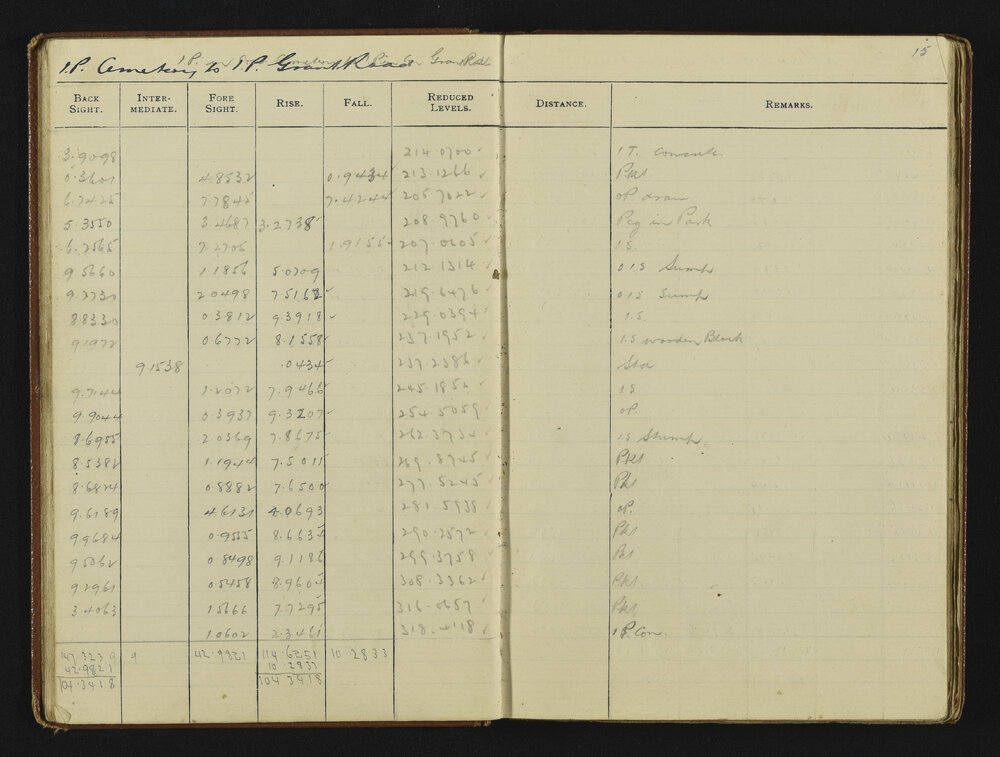 15
I.P. Cemetery to I.P. Grant Road
BACK SIGHT. INTER-MEDIATE. FORE SIGHT. RISE. FALL. REDUCED LEVELS. DISTANCE. REMARKS.
3.9098 214.0700
0.3601 4.8532 0.9434 213.1266 Pkt
6.7425 7.7845 7.4244 205.7022 OP
5.3550 3.4687 3.2738 208.9760 Peg in Park
6.7565 7.2706 1.9155 207.0605 I.S.
9.5660 1.1856 5.0709 212.1314 O.I.S Sump
9.2730 2.0498 7.5162 219.6476 O.I.S Sump
8.8330 0.3812 9.3918 229.0394 I.S.
9.1972 0.6772 8.1558 237.1952 I.S wooden Block
9.1538 .0434 237.2386 Sta
9.7144 1.2072 7.9466 245.1852 I.S
9.9044 0.3937 9.3207 254.5059 OP
8.6955 2.0369 7.8675 262.3734 I.S Stump
8.5382 1.1944 7.5011 269.8745 Pkt
8.6824 0.8882 7.6500 277.5245 Pkt
9.6189 4.6131 4.0693 281.5938 OP.
9.9684 0.9555 8.6634 290.2572 Pkt
9.5062 0.8498 9.1186 299.3758 Pkt
9.2961 0.5458 8.9604 308.3362 Pkt
3.4063 1.5666 7.7295 316.0657 Pkt
1.0602 2.3461 318.4118 I.P. Con.
147.3239 42.9821 114.6251 10.2833
42.9821 10.2833
104.3418 104.3418